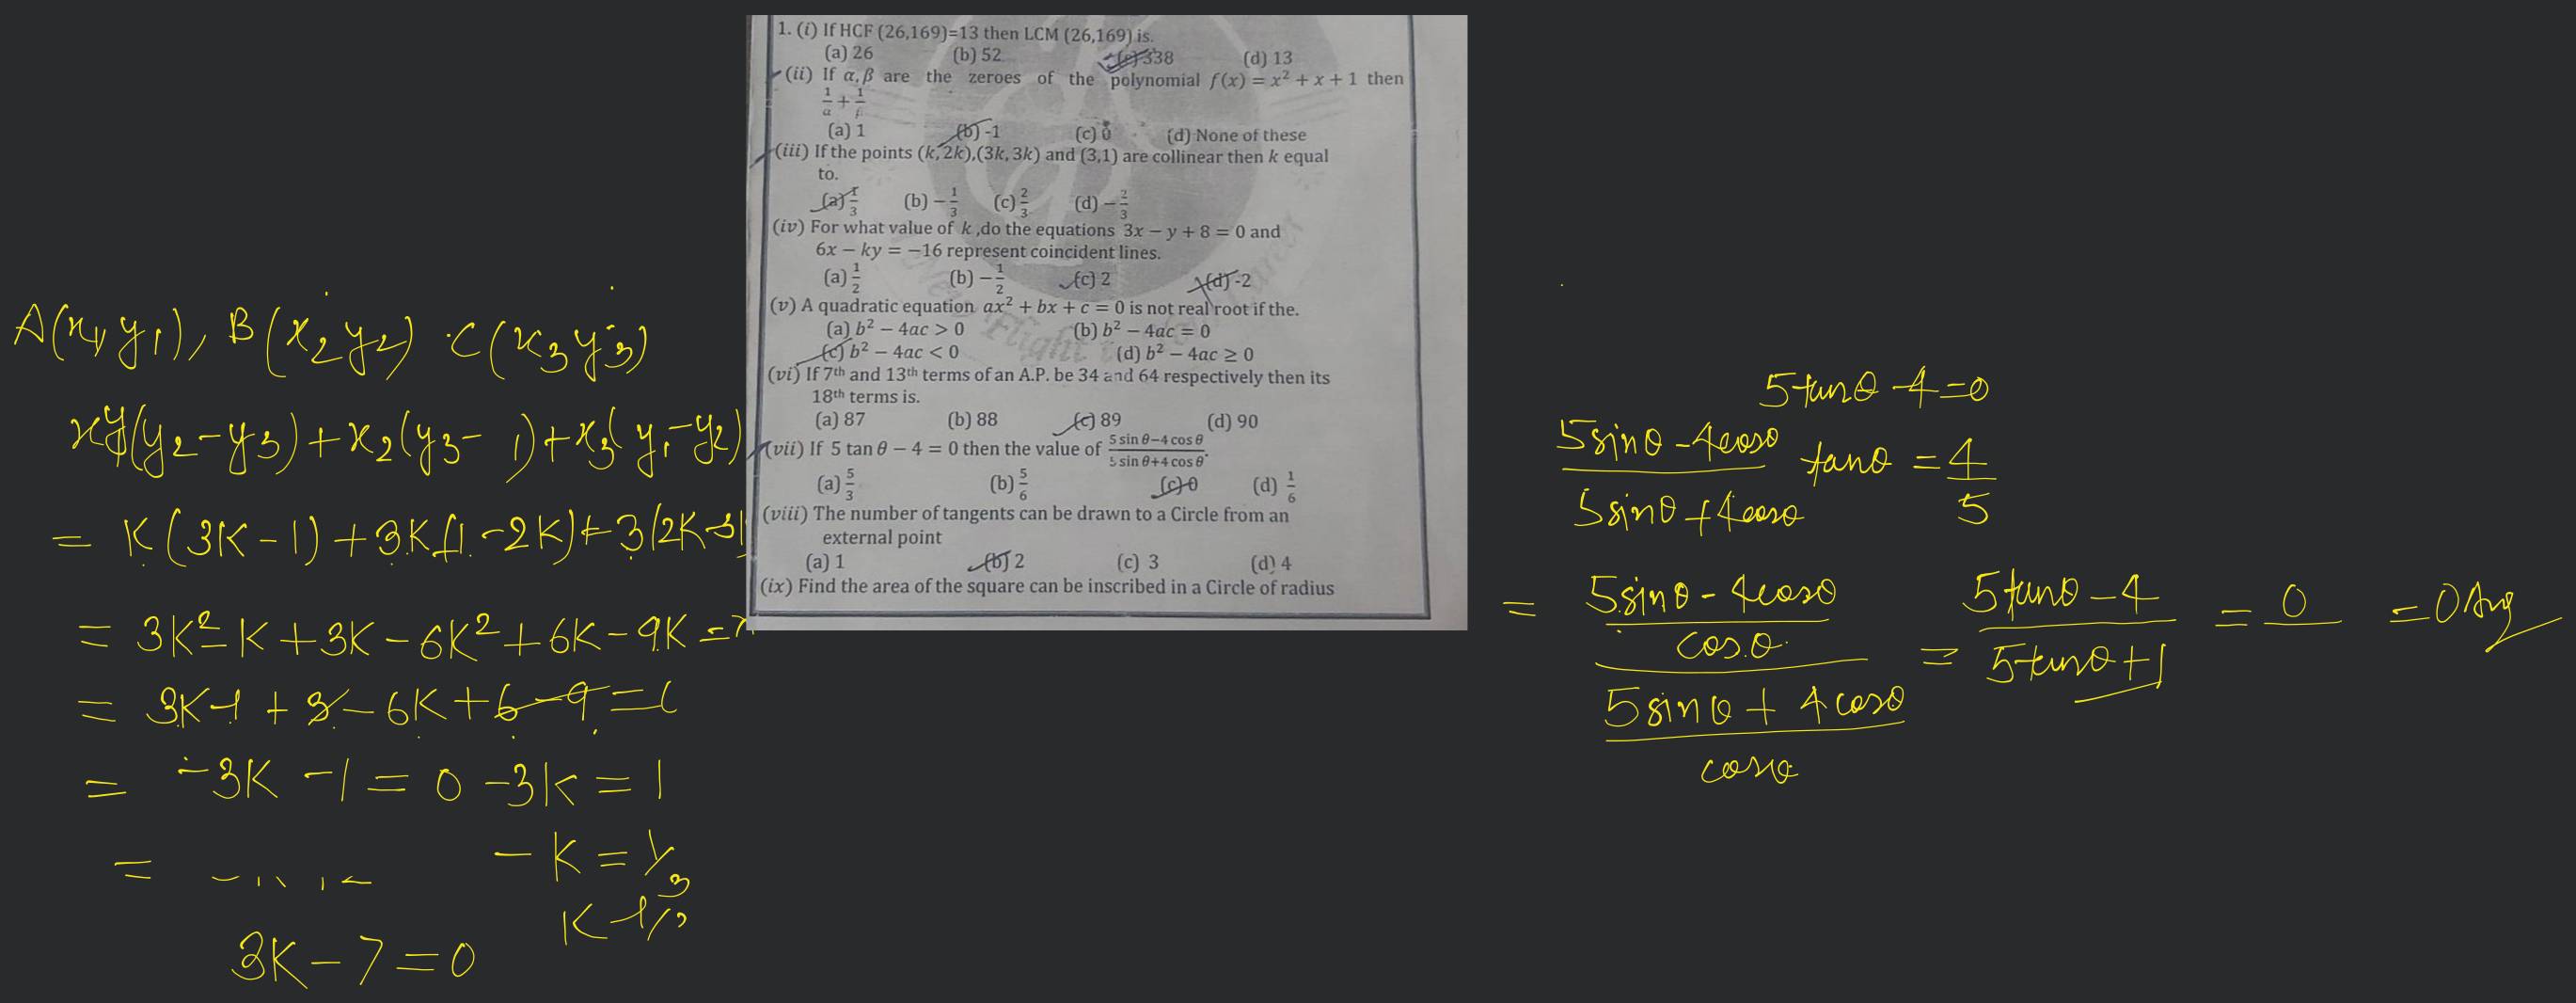 1. (i) If HCF (26,169)=13 then LCM (26,169) is.
(a) 26 (b) 52 (c) 338 (d) 13
(ii) If α, β are the zeroes of the polynomial f(x) = x² + x + 1 then
1/α + 1/β
(a) 1 (b) -1 (c) 0 (d) None of these
(iii) If the points (k, 2k),(3k, 3k) and (3,1) are collinear then k equal
to.
(a) 1/3 (b) − 1/3 (c) 2/3 (d) − 2/3
(iv) For what value of k ,do the equations 3x − y + 8 = 0 and
6x − ky = −16 represent coincident lines.
(a) 1/2 (b) − 1/2 (c) 2 (d) -2
(v) A quadratic equation ax² + bx + c = 0 is not real root if the.
(a) b² − 4ac > 0 (b) b² − 4ac = 0
(c) b² − 4ac < 0 (d) b² − 4ac ≥ 0
(vi) If 7th and 13th terms of an A.P. be 34 and 64 respectively then its
18th terms is.
(a) 87 (b) 88 (c) 89 (d) 90
(vii) If 5 tan θ − 4 = 0 then the value of (5 sin θ−4 cos θ)/(5 sin θ+4 cos θ).
(a) 5/3 (b) 5/6 (c) 0 (d) 1/6
(viii) The number of tangents can be drawn to a Circle from an
external point
(a) 1 (b) 2 (c) 3 (d) 4
(ix) Find the area of the square can be inscribed in a Circle of radius
A(x1, y1), B(x2 y2) C(x3 y3)
(y2-y3)+x2(y3- )+x3(y1-y2)
= K(3K-1)+3K(1-2K)+3(2K-3
= 3K²-K+3K-6K²+6K-9K =
= 3K-1+3-6K+6-9=
= -3K-1=0 -3K=1
= -K=1/3
3K-7=0
5tanθ-4=0
5sinθ-4cosθ tanθ = 4
5sinθ+4cosθ 5
= 5sinθ-4cosθ = 5tanθ-4 = 0 =0 Ans
cosθ 5tanθ+1
5sinθ+4cosθ
cosθ